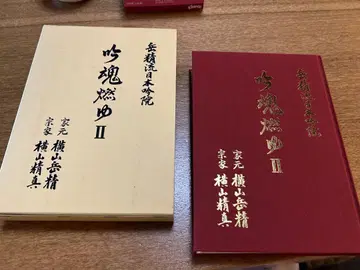 岳精流日本吟院
吟魂燃ゆⅡ
家元 横山岳精
宗家 横山精真
岳精流日本吟院
吟魂燃ゆⅡ
家元 横山岳精
宗家 横山精真